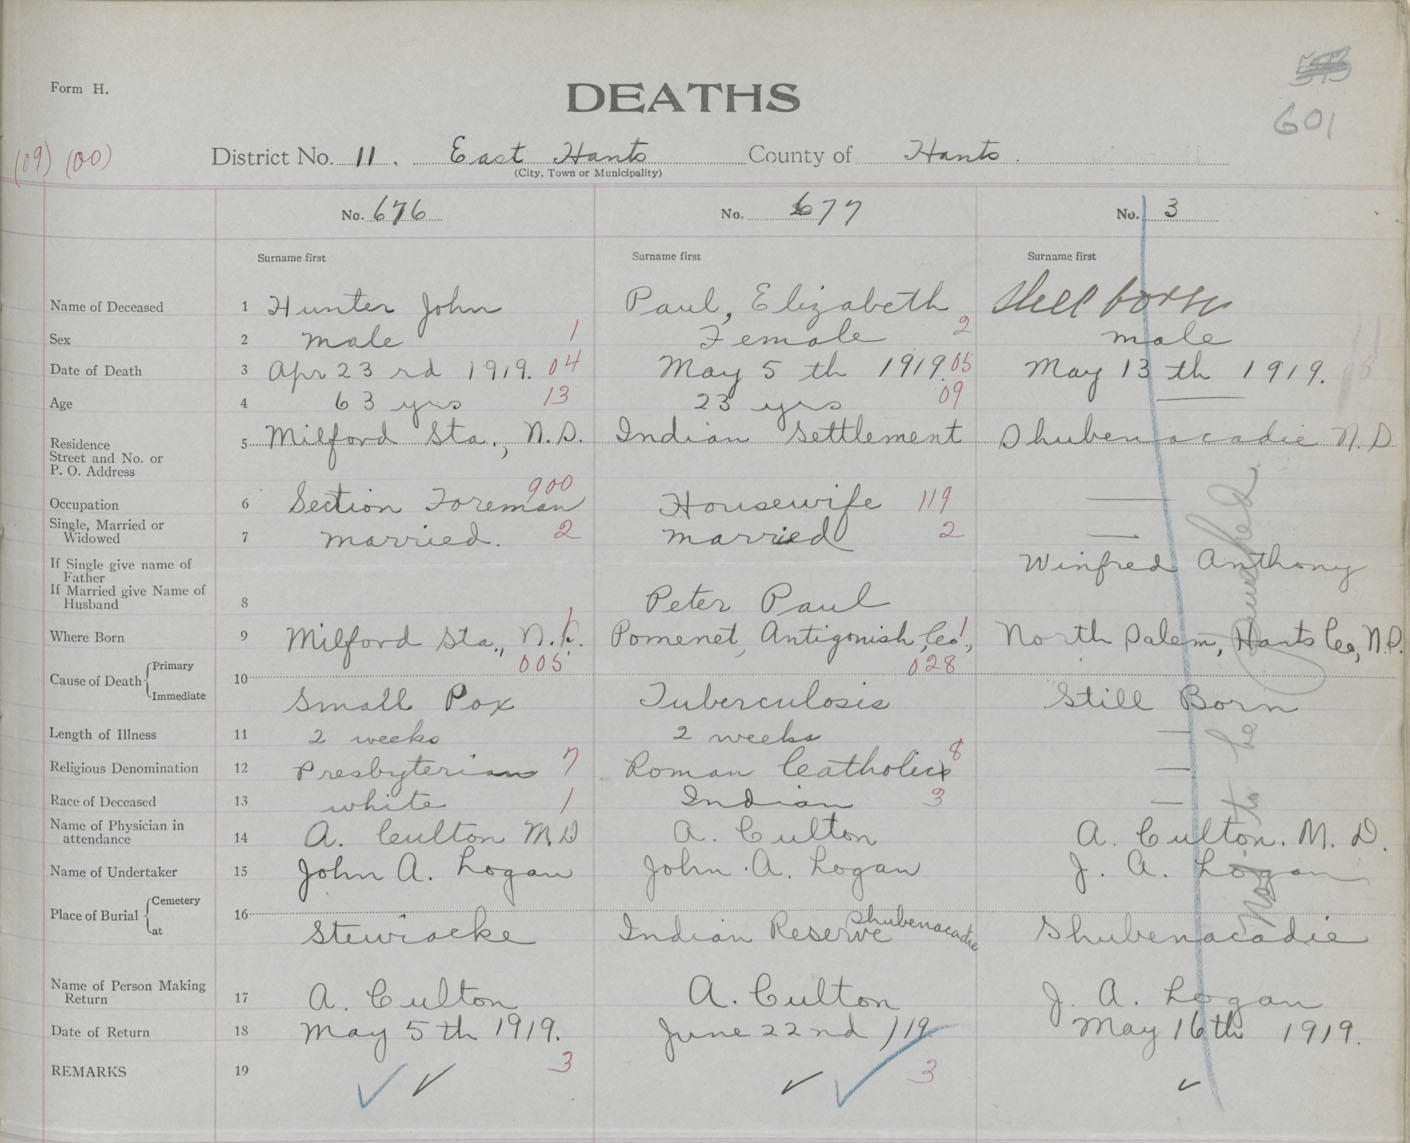 Form H.
DEATHS
601
(09) (00)
District No. 11. East Hants County of Hants.
(City, Town or Municipality)
No. 676 No. 677 No. 3
Surname first Surname first Surname first
Name of Deceased 1 Hunter John Paul, Elizabeth Still born
Sex 2 male 1 Female 2 male
Date of Death 3 Apr 23rd 1919. 04 May 5th 1919. 05 May 13th 1919.
Age 4 63 yrs 13 23 yrs 09 —
Residence
Street and No. or
P. O. Address
5 Milford Sta., N.S. Indian Settlement Shubenacadie N.S.
900
Occupation 6 Section Foreman Housewife 119 —
Single, Married or
Widowed
7 married. 2 married 2 —
If Single give name of
Father
Winfred Anthony
If Married give Name of
Husband
8 Peter Paul
Where Born 9 Milford Sta., N.S. 1 Pomenet, Antigonish, Co., 1 North Salem, Hants Co, N.S.
Cause of Death Primary 005 028
10
Immediate Small Pox Tuberculosis Still Born
Length of Illness 11 2 weeks 2 weeks —
Religious Denomination 12 Presbyterian 7 Roman Catholic 8 —
Race of Deceased 13 white 1 Indian 3 —
Name of Physician in
attendance
14 A. Culton M.D A. Culton A. Culton. M. D.
Name of Undertaker 15 John A. Logan John A. Logan J. A. Logan
Place of Burial Cemetery
16
at Stewiacke Indian Reserve Shubenacadie Shubenacadie
Name of Person Making
Return
17 A. Culton A. Culton J. A. Logan
Date of Return 18 May 5th 1919. June 22nd /19 May 16th 1919.
REMARKS 19 3 ✓ ✓ ✓ ✓ 3 ✓
Not to be